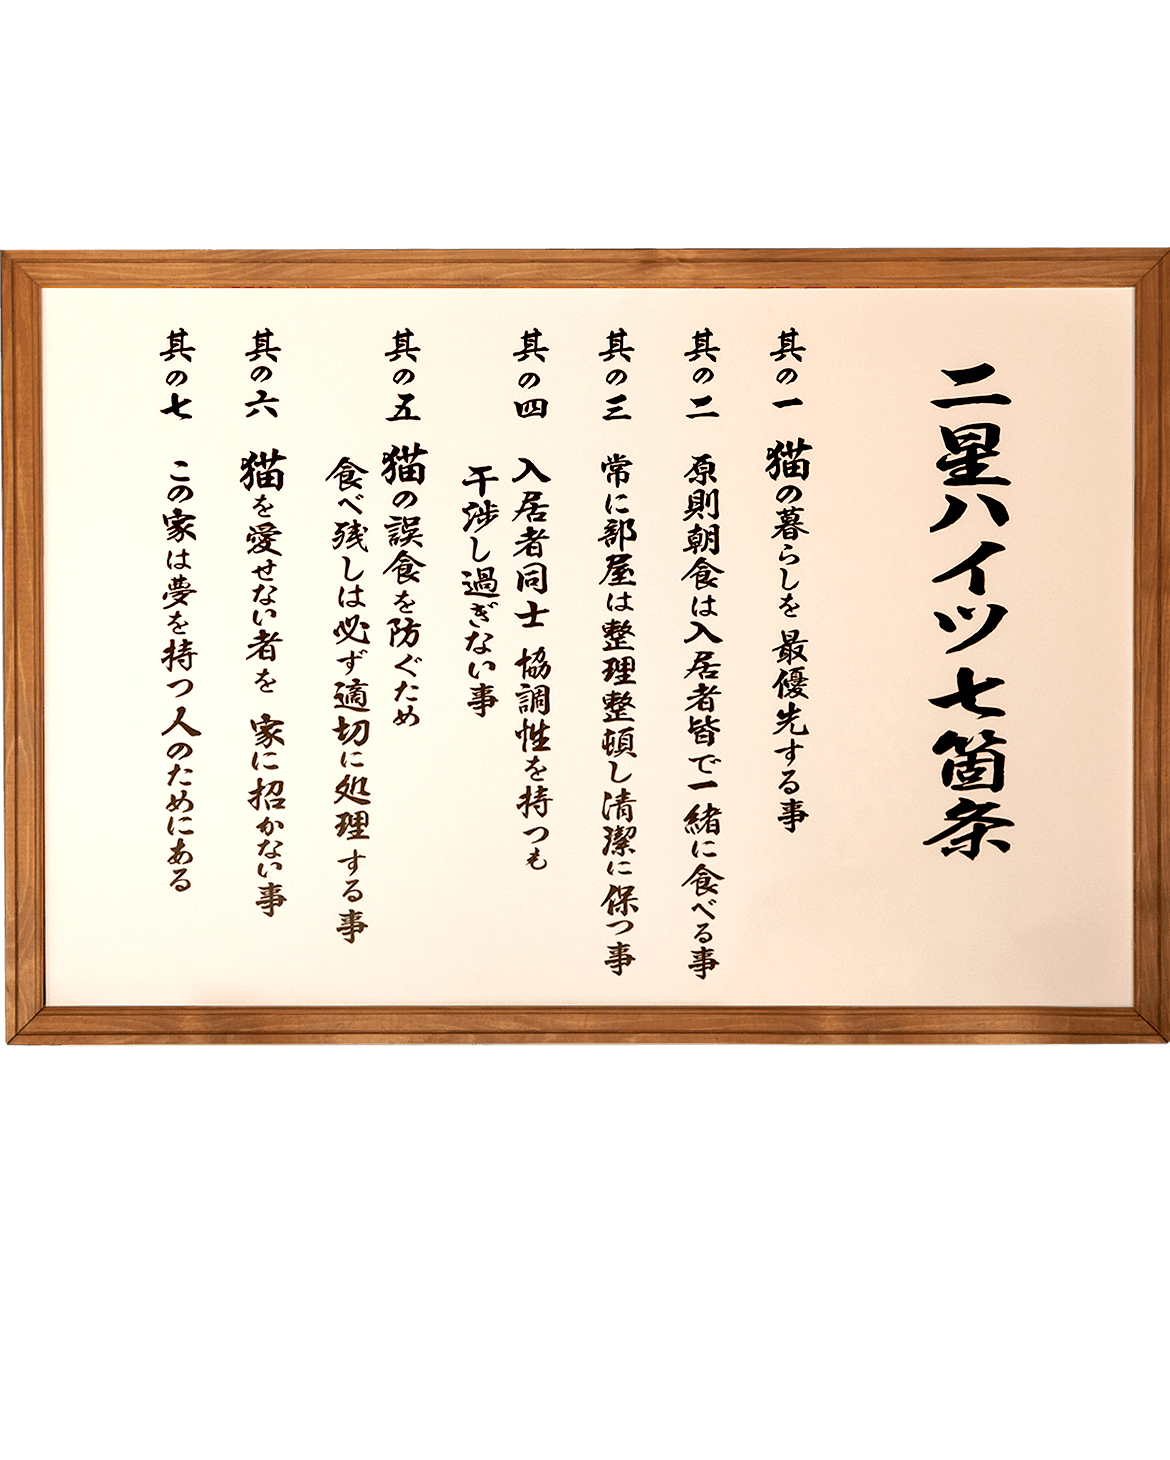 二星ハイツ七箇条
其の一 猫の暮らしを 最優先する事
其の二 原則朝食は入居者皆で一緒に食べる事
其の三 常に部屋は整理整頓し清潔に保つ事
其の四 入居者同士 協調性を持つも
干渉し過ぎない事
其の五 猫の誤食を防ぐため
食べ残しは必ず適切に処理する事
其の六 猫を愛せない者を 家に招かない事
其の七 この家は夢を持つ人のためにある